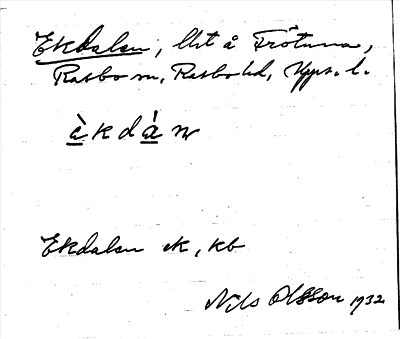 Ekdalen, lht å Frötuna,
Rasbo sn, Rasbo hd, Upps. l.
èkdán
Ekdalen ek, kb
Nils Olsson 1932